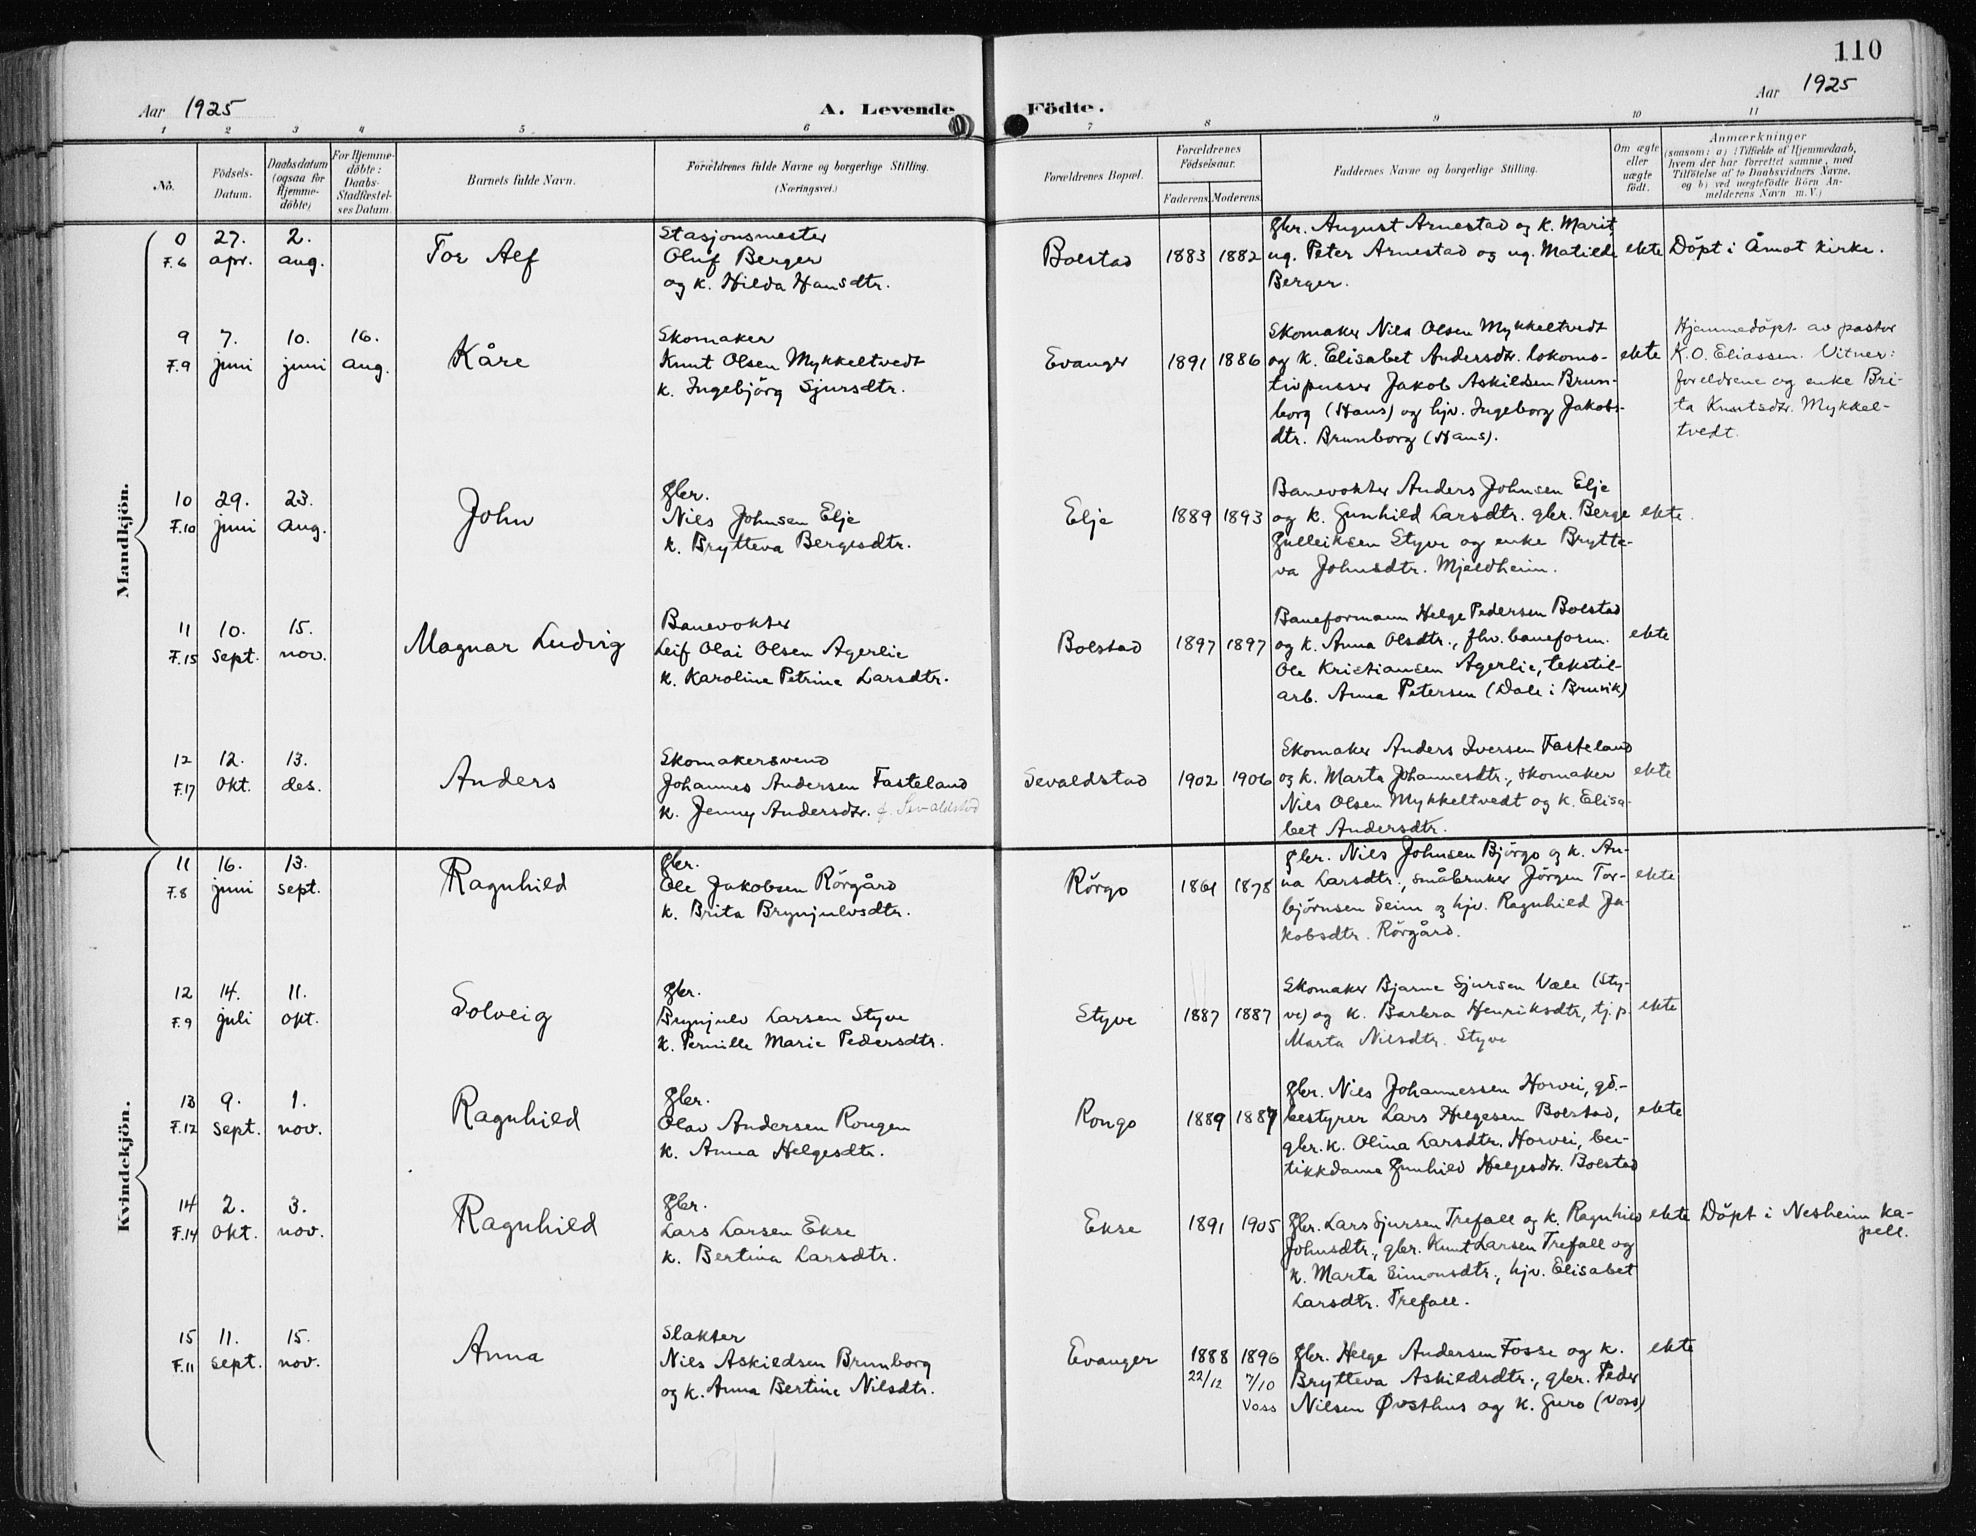 110
Aar 1925
A. Levende Födte.
Aar 1925
1 2 3 4 5 6 7 8 9 10 11
No.
Födsels-Datum.
Daabsdatum (ogsaa for Hjemme-döbte)
For Hjemme-döbte: Daabs-Stadfæstel-ses Datum.
Barnets fulde Navn.
Forældrenes fulde Navne og borgerlige Stilling.
(Næringsvei.)
Forældrenes Bopæl.
Forældrenes Födselsaar.
Faderens. Moderens.
Faddernes Navne og borgerlige Stilling.
Om ægte eller uægte födt.
Anmærkninger
(saasom: a) i Tilfælde af Hjemmedaab,
hvem der har forrettet samme, med
Tilföielse af to Daabsvidners Navne,
og b) ved uægtefödte Börn An-
melderens Navn m. V.)
Mandkjön.
0 27. 2. Stasjonsmester gbr. August Arnestad og k. Marit,
F.6 apr. aug. Tor Alf Oluf Berger Bolstad 1883 1882 ug. Peter Arnestad og ug. Matilde ekte Döpt i Åmot kirke.
og k. Hilda Hansdtr. Berger.
9 7. 10. 16. Skomaker Skomaker Nils Olsen Mykkeltvedt Hjemmedöpt av pastor
F.9 juni juni aug. Kåre Knut Olsen Mykkeltvedt Evanger 1891 1886 og k. Elisabet Andersdtr. lokomo- ekte K.O. Eliassen. Vitner:
k. Ingebjörg Sjursdtr. tivpusser Jakob Askildsen Brun- foreldrene og enke Bri-
borg (Hans) og hjv. Ingeborg Jakobs- ta Knutsdtr. Mykkel-
dtr. Brunborg (Hans). tvedt.
10 29. 23. gbr. Banevokter Anders Johnsen Elje
F.10 juni aug. John Nils Johnsen Elje Elje 1889 1893 og k. Gunhild Larsdtr. gbr. Berge ekte.
k. Brytteva Bergesdtr. Gulleiksen Styve og enke Brytte-
va Johnsdtr. Mjeldheim.
11 10. 15. Banevokter Baneformann Helge Pedersen Bolstad
F.15 sept. nov. Magnar Ludvig Leif Olai Olsen Agerlie Bolstad 1897 1897 og k. Anna Olsdtr., fhv. baneform. ekte
k. Karoline Petrine Larsdtr. Ole Kristiansen Agerlie, tekstil-
arb. Anna Petersen (Dale i Bruvik)
12 12. 13. Skomakersvend Skomaker Anders Iversen Fasteland
F.17 okt. des. Anders Johannes Andersen Fasteland Sevaldstad 1902 1906 og k. Marta Johannesdtr., skomaker ekte
k. Jenny Andersdtr. f. Sevaldstad Nils Olsen Mykkeltvedt og k. Elisa-
bet Andersdtr.
Kvindekjön.
11 16. 13. gbr. gbr. Nils Johnsen Björgo og k. An-
F.8 juni sept. Ragnhild Ole Jakobsen Rörgård Rörgo 1861 1878 na Larsdtr., småbruker Jörgen Tor- ekte
k. Brita Brynjulvsdtr. björnsen Seim og hjv. Ragnhild Ja-
kobsdtr. Rörgård.
12 14. 11. gbr. Skomaker Bjarne Sjursen Væle (Sty-
F.9 juli okt. Solveig Brynjulv Larsen Styve Styve 1887 1887 ve) og k. Barbra Henriksdtr, tj.p. ekte
k. Pernille Marie Pedersdtr. Marta Nilsdtr. Styve
13 9. 1. gbr. gbr. Nils Johannessen Horvei, gd.-
F.12 sept. nov. Ragnhild Olav Andersen Rongen Rongo 1889 1887 bestyrer Lars Helgesen Bolstad, ekte
k. Anna Helgesdtr. gbr.k. Olina Larsdtr. Horvei, bu-
tikkdame Gunhild Helgesdtr. Bolstad
14 2. 3. gbr.
F.14 okt. nov. Ragnhild Lars Larsen Ekse Ekse 1891 1905 gbr. Lars Sjursen Trefall og k. Ragnhild ekte Döpt i Nesheim ka-
k. Bertina Larsdtr. Johnsdtr., gbr. Knut Larsen Trefall og pell.
k. Marta Simonsdtr., hjv. Elisabet
Larsdtr. Trefall.
15 11. 15. Slakter
F.11 sept. nov. Anna Nils Askildsen Brunborg Evanger 1888 1896 gbr. Helge Andersen Fosse og k. ekte
og k. Anna Bertine Nilsdtr. 22/12 7/10 Brytteva Askildsdtr., gbr. Peder
Voss Nilsen Øvsthus og k. Guro (Voss)